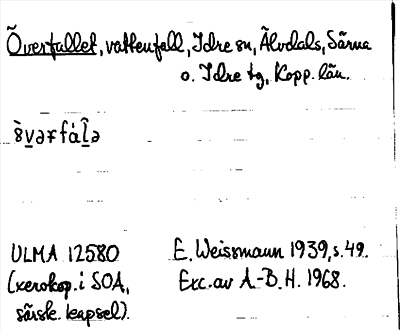 Överfallet, vattenfall, Idre sn, Älvdals, Särna
o. Idre tg, Kopp. län.
ULMA 12580
(xerokop. i SOA,
särsk. kapsel).
E. Weissmann 1939, s. 49.
Exc. av A.-B. H. 1968.